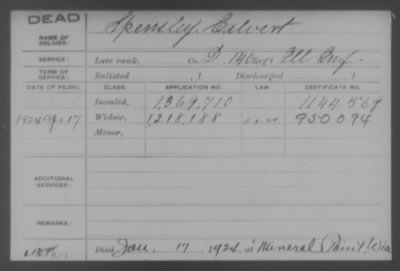 DEAD
NAME OF SOLDIER: Spensley, Calvert
SERVICE: Late rank, Co. D, 140 Ill Inf
TERM OF SERVICE: Enlisted , 1 Discharged , 1
DATE OF FILING. CLASS. APPLICATION NO. LAW. CERTIFICATE NO.
Invalid, 1,369,710 1144,569
1924 Apr 17 Widow, 1,218,188 950094
Minor,
ADDITIONAL SERVICES:
REMARKS:
Died Jan. 17, 1924, at Mineral Point, Wis